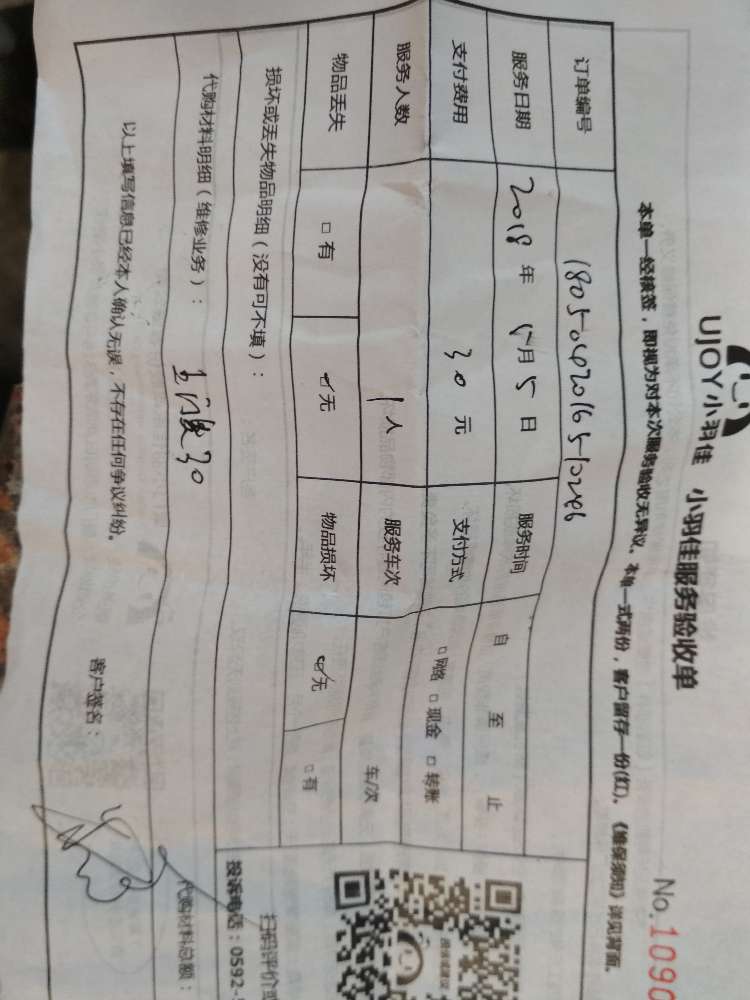 UJOY小羽佳 小羽佳服务验收单
No.1090
本单一经核签，即视为对本次服务验收无异议。本单一式两份，客户留存一份(红)。《维保须知》详见背面。
订单编号 18050420165102496
服务日期 2018 年 5月 5 日 服务时间 自 至 止
支付费用 30 元 支付方式 □网络 □现金 □转账
服务人数 1人 服务车次 车/次
物品丢失 □有 ☑无 物品损坏 ☑无 □有
损坏或丢失物品明细（没有可不填）：
代购材料明细（维修业务）： 30
代购材料总额：
以上填写信息已经本人确认无误，不存在任何争议纠纷。 客户签名：
扫码评价或
投诉电话：0592-